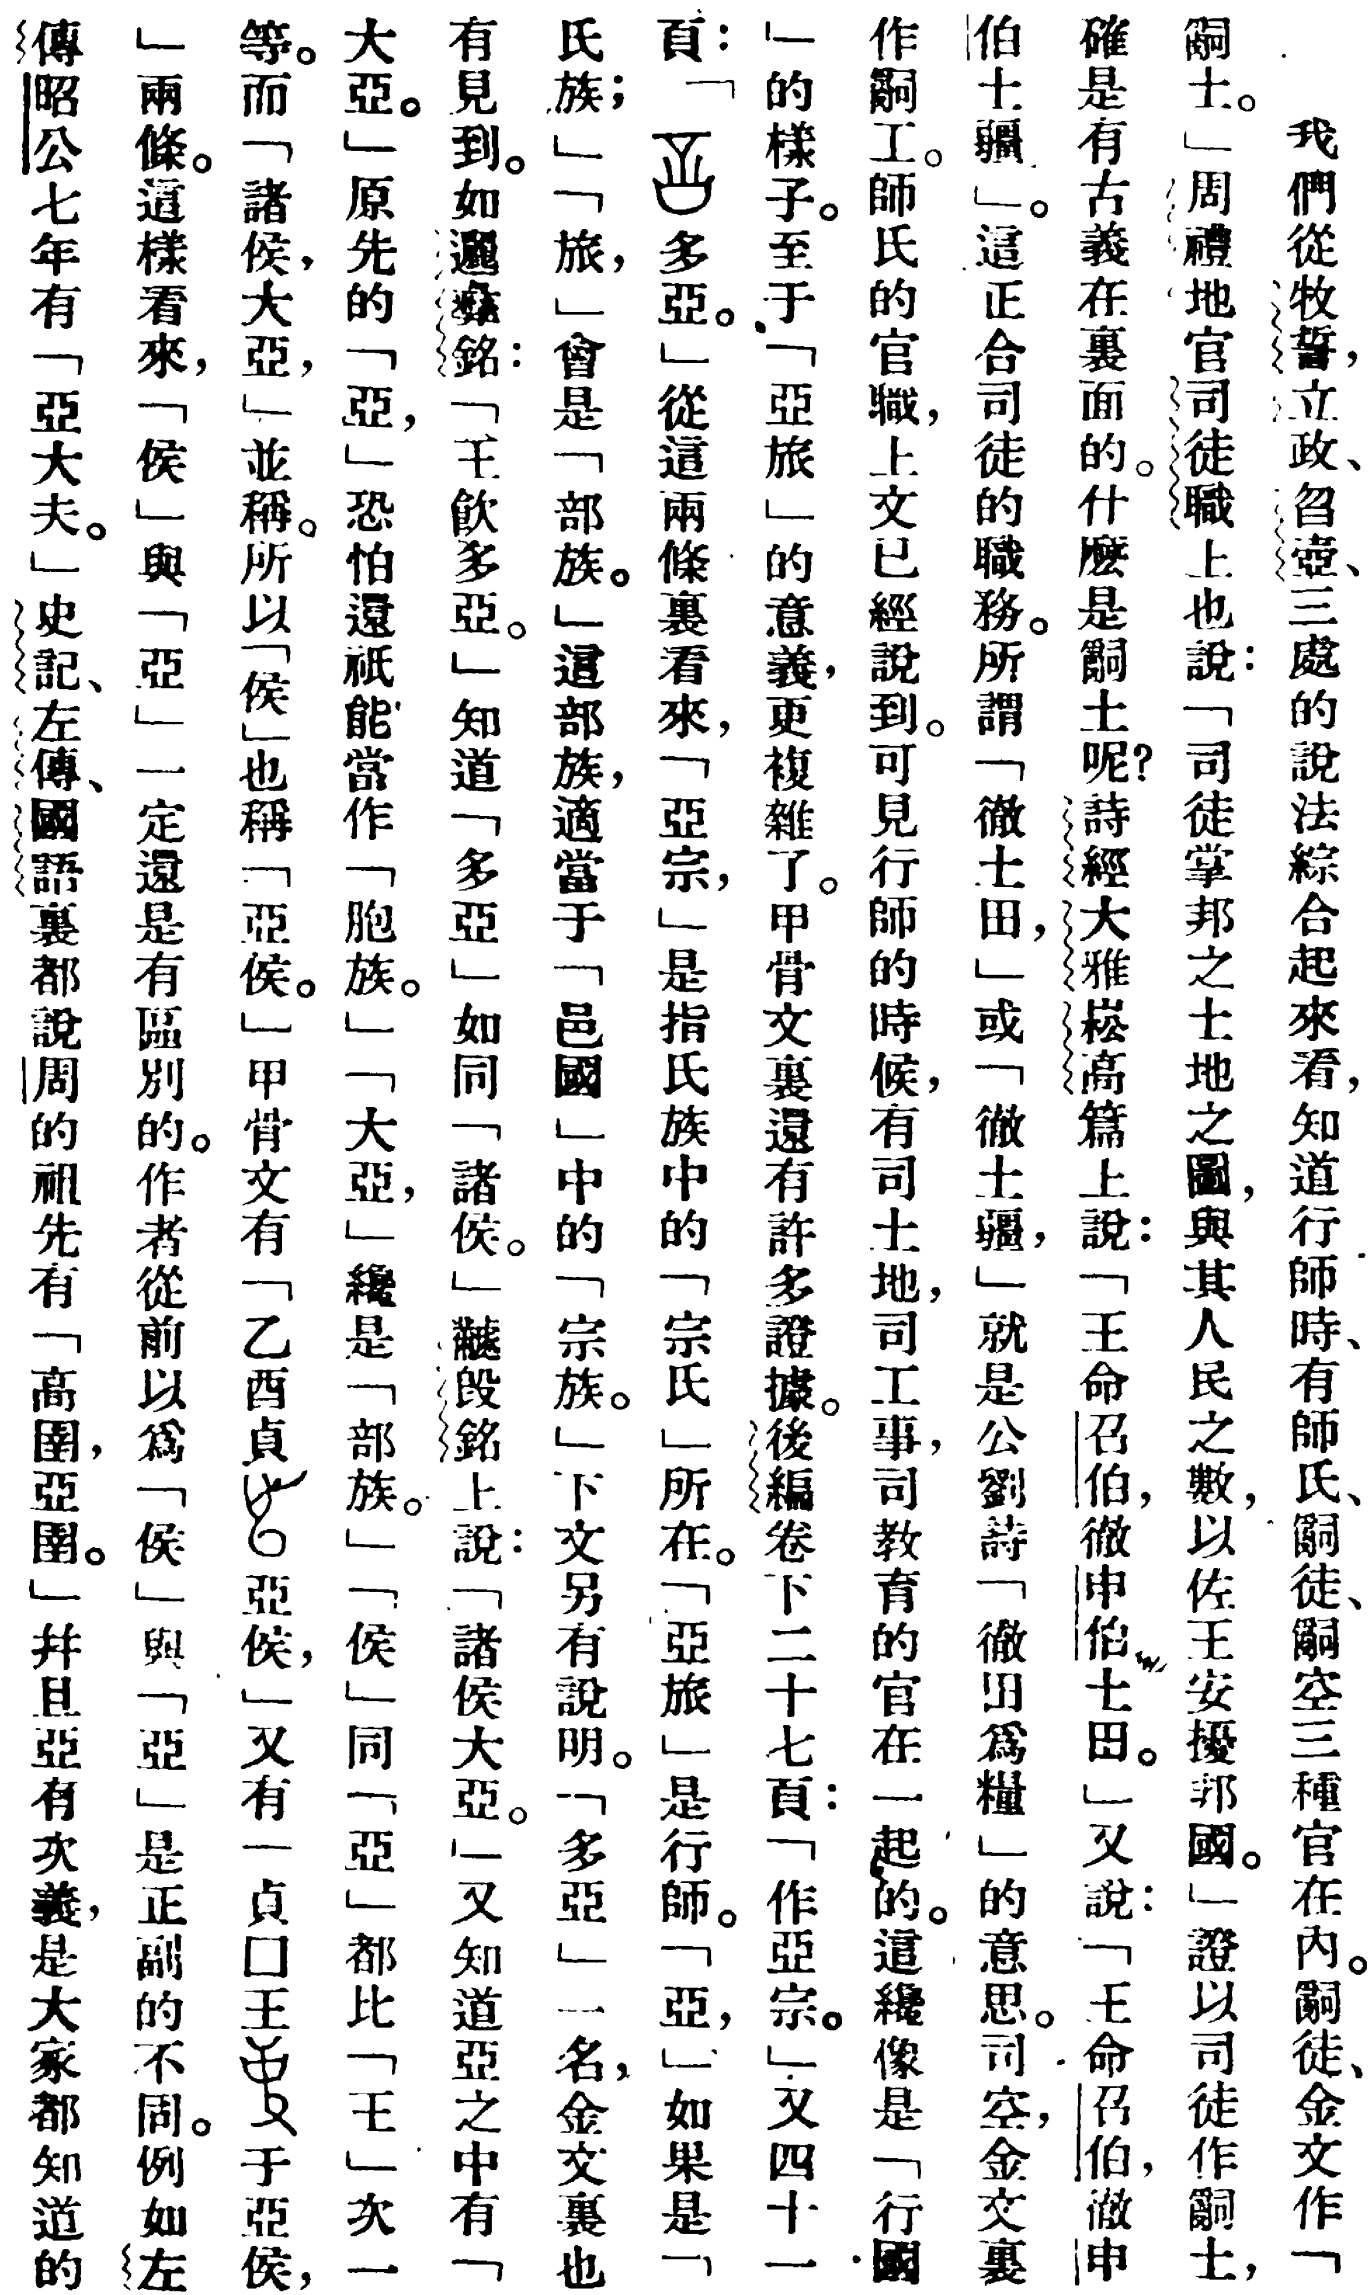 我們從牧誓，立政、曶壺、三處的說法綜合起來看，知道行師時、有師氏、嗣徒、嗣空三種官在內。嗣徒、金文作「
嗣士。」周禮地官司徒職上也說：「司徒掌邦之土地之圖，與其人民之數，以佐王安擾邦國。」證以司徒作嗣士，
確是有古義在裏面的。什麼是嗣土呢？詩經大雅崧高篇上說：「王命召伯，徹申伯土田。」又說：「王命召伯，徹申
伯土疆」。這正合司徒的職務。所謂「徹土田，」或「徹土疆，」就是公劉詩「徹田爲糧」的意思。司空，金文裏
作嗣工。師氏的官職，上文已經說到。可見行師的時候，有司土地，司工事，司教育的官在一起的。這纔像是「行國
」的樣子。至于「亞旅」的意義，更複雜了。甲骨文裏還有許多證據。後編卷下二十七頁：「作亞宗。」又四十一
頁：「多亞。」從這兩條裏看來，「亞宗，」是指氏族中的「宗氏」所在。「亞旅」是行師。「亞，」如果是「
氏族；」「旅，」會是「部族。」這部族，適當于「邑國」中的「宗族。」下文另有說明。「多亞」一名，金文裏也
有見到。如彝銘：「王飲多亞。」知道「多亞」如同「諸侯。」毁銘上說：「諸侯大亞。」又知道亞之中有「
大亞。」原先的「亞，」恐怕還祇能當作「胞族。」「大亞，」纔是「部族。」「侯」同「亞」都比「王」次一
等。而「諸侯，大亞，」並稱。所以「侯」也稱「亞侯。」甲骨文有「乙酉貞亞侯，」又有一貞囗王于亞侯，
」兩條。這樣看來，「侯」與「亞」一定還是有區別的。作者從前以爲「侯」與「亞」是正副的不同。例如左
傳昭公七年有「亞大夫。」史記、左傳、國語裏都說周的祖先有「高圉，亞圉。」幷且亞有次義，是大家都知道的